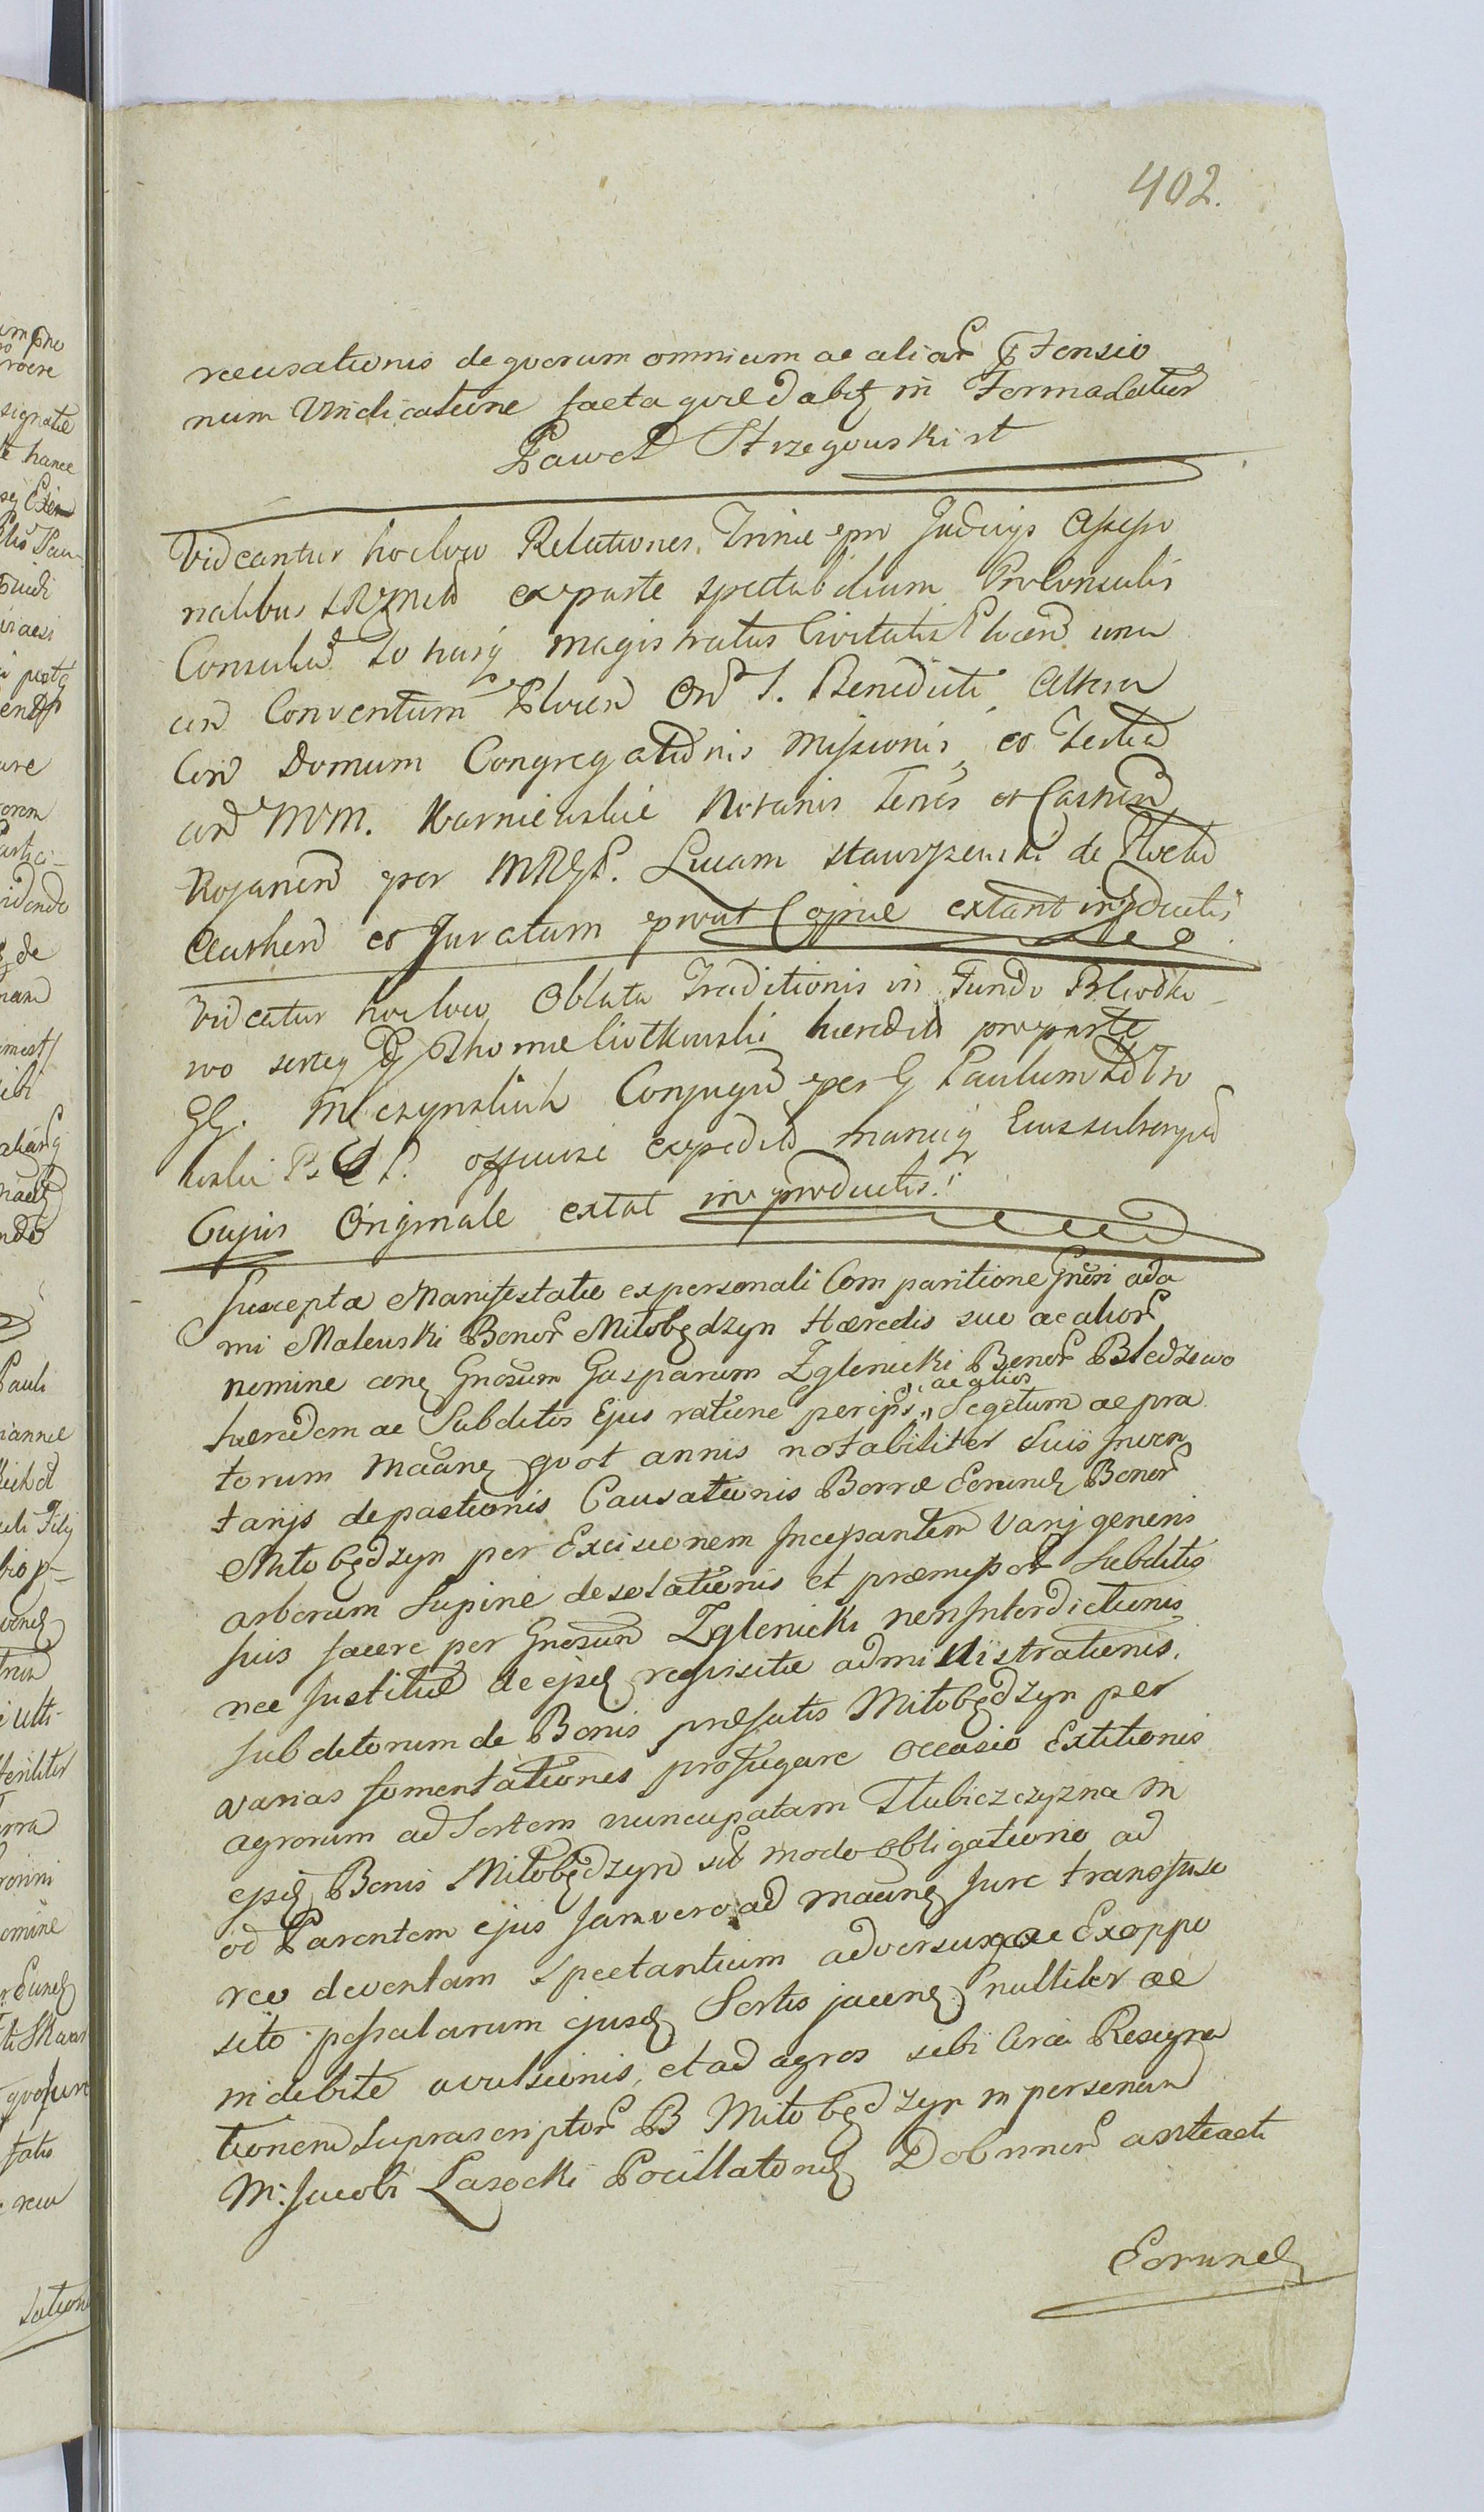 402.
recusationis de quorum omnium ac aliar Ptensio
num Vindicatione facta quaed abq in Forma Latior
Paweł Strzegowski mp
Videantur hocloco Relationes Trinae pro Judicijs Assesso
rialibus S.R.M. ex parte spectabilium ProConsulis
Consulum totiusq magistratus Civitatis Plocen una
con Conventum Plocen Ord S. Benedicti, Altera
Con Domum Congregationis Missionis, et Tertia
con MM. Karniewskie Notarios Terres et Castren
Rozanen per MRGP. Lucam Stawiszewski de Plock
Authen et Juratum prout Copiae extant inproductis
Videatur hocloco Oblata Traditionis in Fundo Bliodko
wo sortey G Thomae Ciotkowski haeredis pro parte
GG. Mlczynskich Conjugum per G Paulum
officiose expedita manuq Eius subscripta
Cujus Originale extat in productis.
Suscepta Manifestatio ex personali Comparitione Gnosi ada
mi Malewski Bonor Miłobędzyn Haeredis suo ac alior
nomine conq Gnosum Gasparum Zglenicki Bonor Bledzewo
haeredem ac Subditos Ejus ratione per ips ac alios Segetum ac pra
torum Maanq quot annis notabiliter Suis Inven
tarijs depactionis Causationis Borrae Eorundq Bonor
Miłobędzyn per Excisionem Incessantem Varij generis
arborum Supine desolationis et praemissor Subditis
suis facere per Gnosum Zglenicki non Interdictionis
nec Justitiae de ejsdq requisitae administrationis.
subditorum de Bonis praefatis Miłobędzyn per
varias fomentationes profugare occasio Extitionis
agrorum ad Sortem nuncupatam Słubiczczyzna in
ejsdq Bonis Miłobędzyn sub modo obligationis ad
od Parentem ejus Jam vero ad Maanq Jure transfuso
reo deventam spectantium adversus ac Ex oppo
sito possulanum ejusdq Sortis jacenq nulliter ac
indebite avulsionis, et ad agros sibi Circa Resigna
tionem Suprascriptor B Miłobędzyn in personam
M. Jacobi Lasocki Pocillatoris Dobrinen anteacti
Eorundq